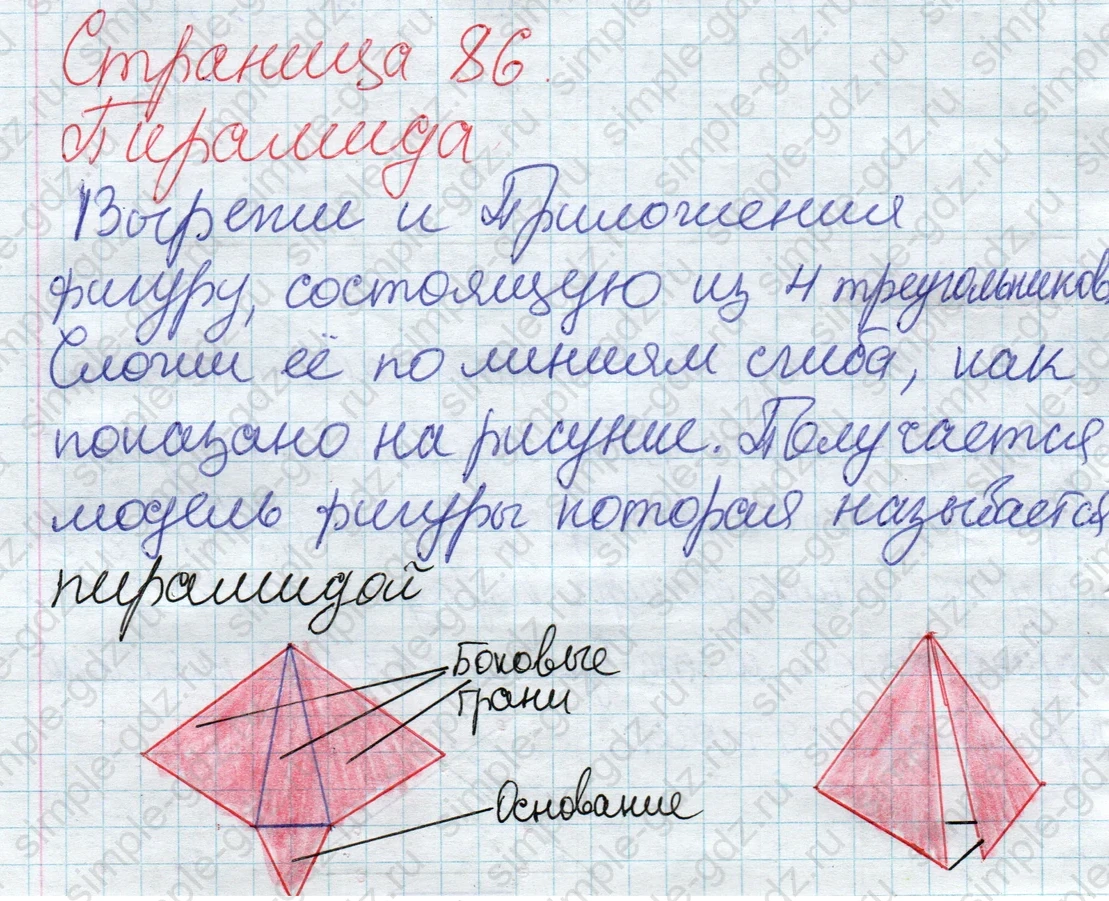 Страница 86
Пирамида
Вырежи и Приложения
фигуру, состоящую из 4 треугольников
Сложи её по линиям сгиба, как
показано на рисунке. Получается
модель фигуры которая называется
пирамидой
Боковые
грани
Основание
simple-gdz.ru